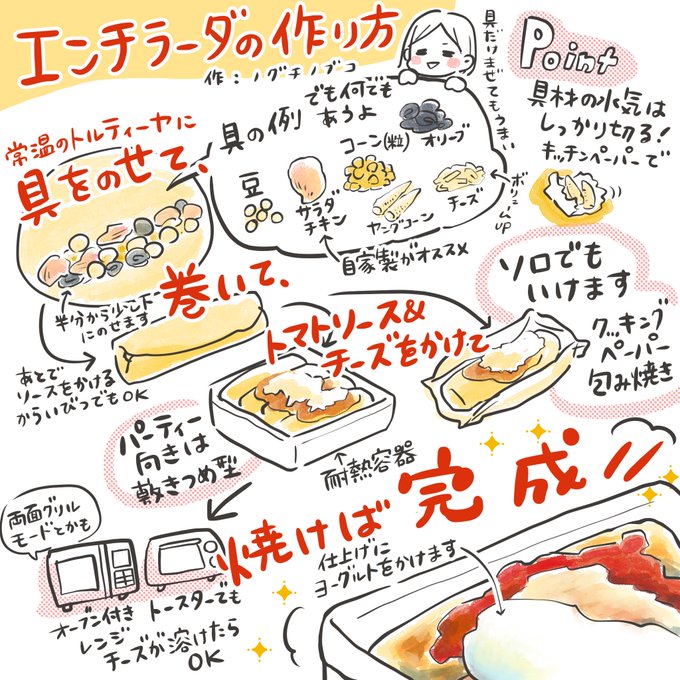 エンチラーダの作り方
作:ノグチノブコ
具だけまぜてもうまい
Point
具材の水気は
しっかり切る!
キッチンペーパーで
常温のトルティーヤに
具をのせて、
具の例
でも何でも
あうよ
豆
サラダ
チキン
コーン(粒)
オリーブ
ヤングコーン
チーズ
ボリュームUP
自家製がオススメ
半分から少し下
にのせます
巻いて、
あとで
ソースをかける
からいびつでもOK
トマトソース&
チーズをかけて
ソロでも
いけます
クッキング
ペーパー
包み焼き
パーティー
向きは
敷きつめ型
耐熱容器
両面グリル
モードとかも
オーブン付き
レンジ
トースターでも
チーズが溶けたら
OK
焼けば完成
仕上げに
ヨーグルトをかけます